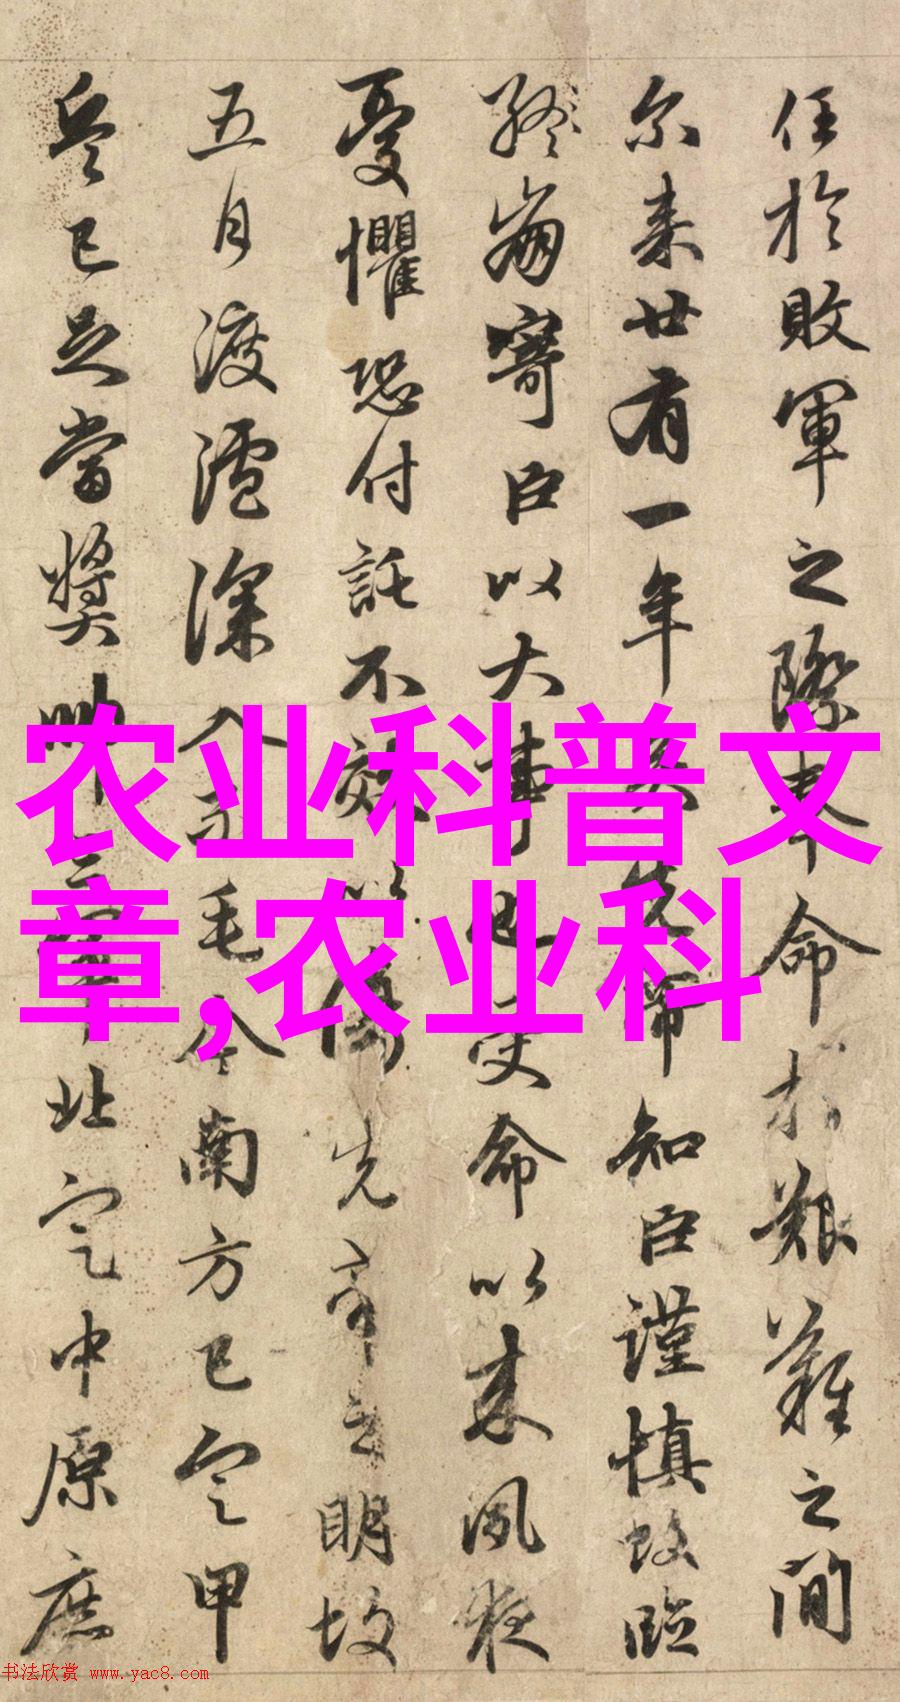 任於敗軍之際奉命於艱難之間
尔来廿有一年矣先帝知臣謹慎故臨
終崩寄臣以大事也受命以来夙夜
憂懼恐付託不效以傷先帝之明故
五月渡瀘深入不毛今南方已定甲
兵已足當獎帥三軍北定中原庶
农业科普文
章,农业科
书法欣赏 www.yac8.com